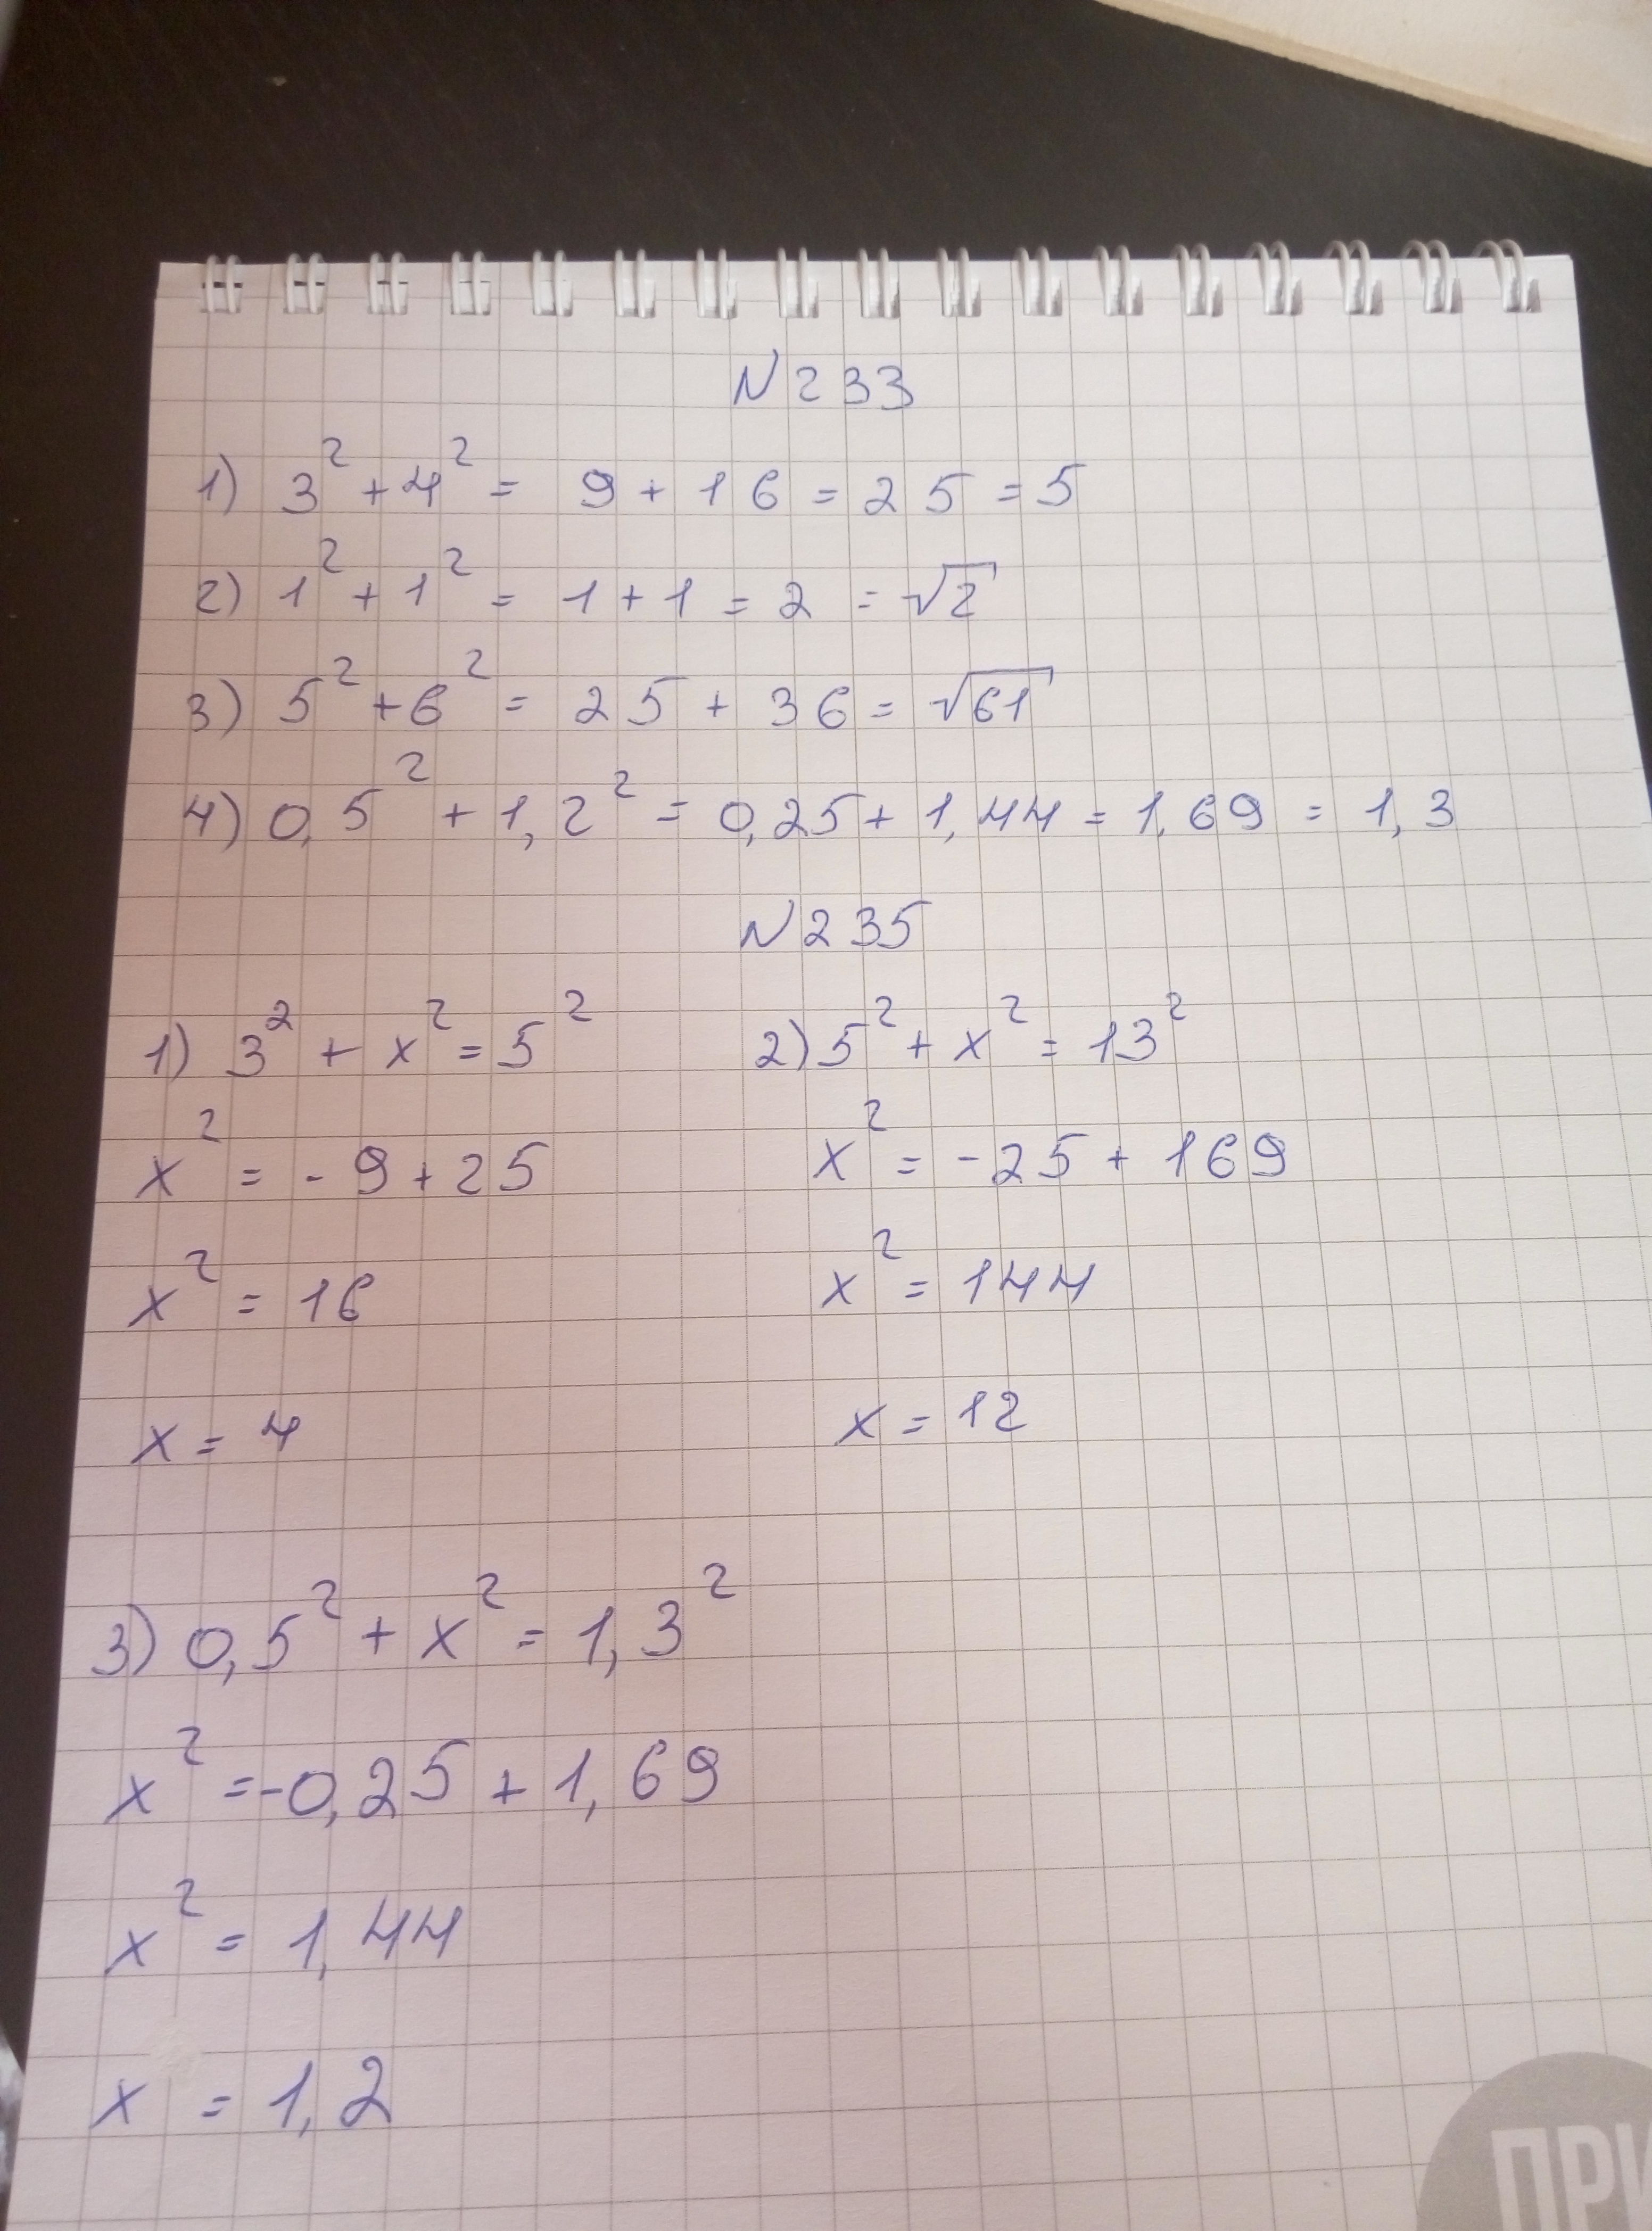 N233
1) 3² + 4² = 9 + 16 = 25 = 5
2) 1² + 1² = 1 + 1 = 2 = √2
3) 5² + 6² = 25 + 36 = √61
4) 0,5² + 1,2² = 0,25 + 1,44 = 1,69 = 1,3
N235
1) 3² + x² = 5²
x² = - 9 + 25
x² = 16
x = 4
2) 5² + x² = 13²
x² = -25 + 169
x² = 144
x = 12
3) 0,5² + x² = 1,3²
x² = -0,25 + 1,69
x² = 1,44
x = 1,2